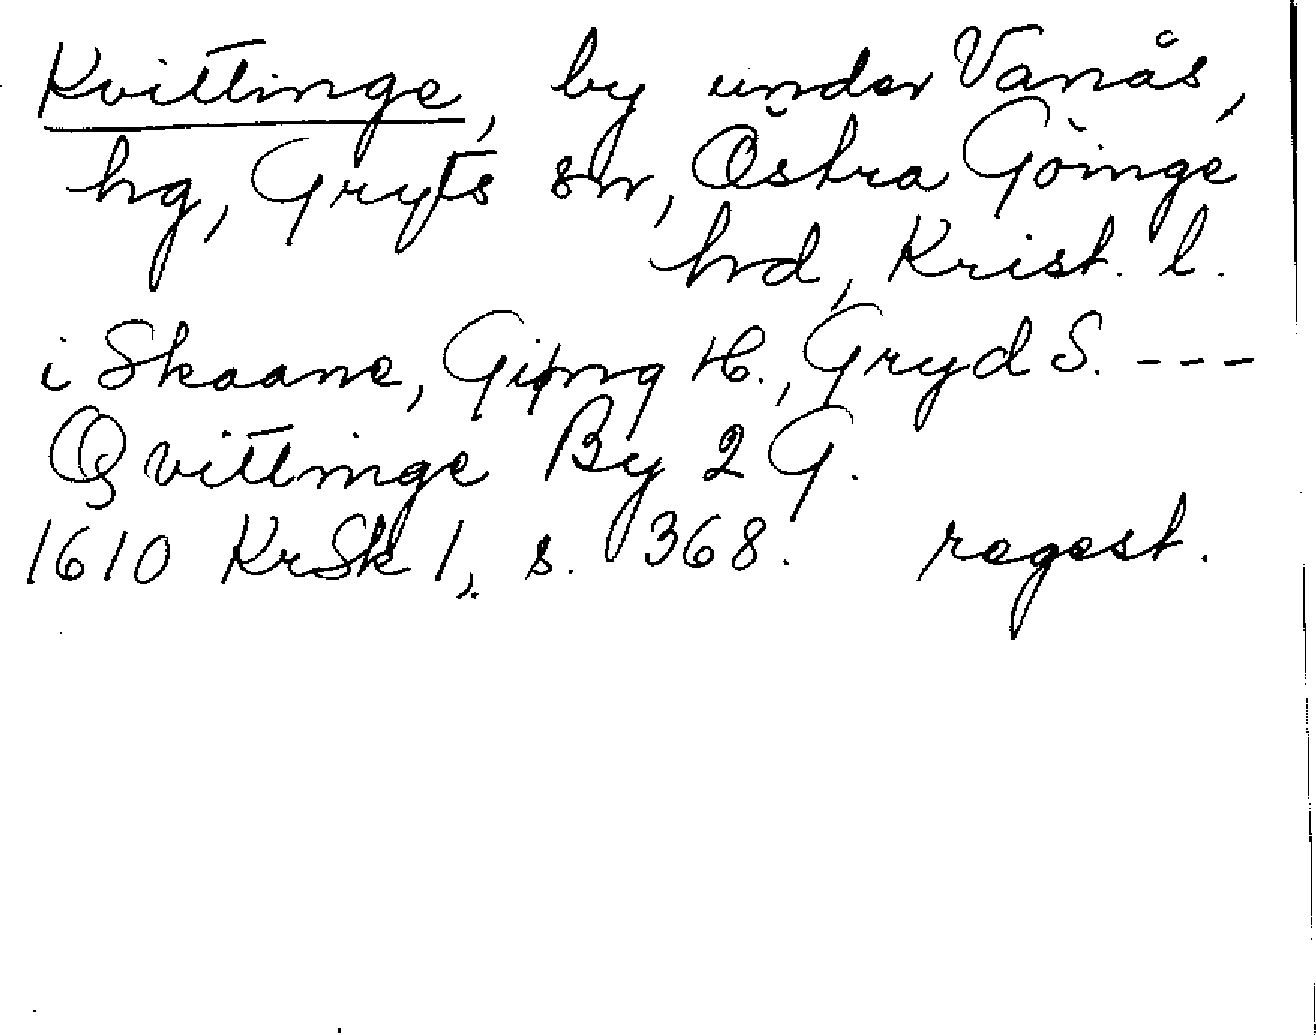 Kvittinge, by under Vanås,
hg, Gryts sn, Östra Göinge
hrd, Krist. l.
i Skaane, Giøng H., Gryd S. ---
Qvittinge By 2 G.
1610 KrSk 1, s. 368. regest.